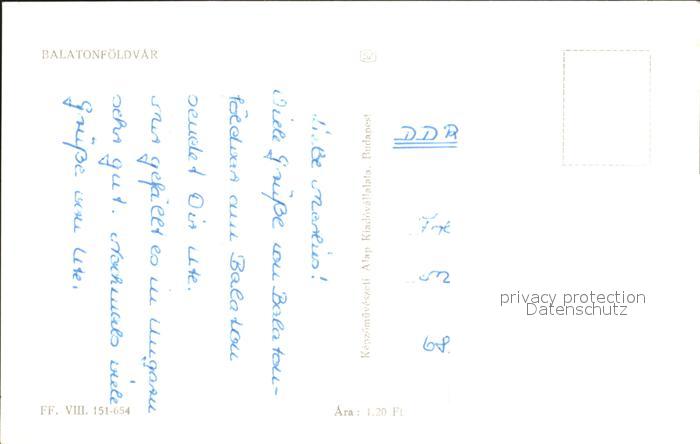 BALATONFÖLDVÁR
Liebe Martin!
Viele Grüße von Balaton-
földvar am Balaton
sendet Dir Ute.
Mir gefällt es in Ungarn
sehr gut. Nochmals viele
Grüße von Ute.
Képzőművészeti Alap Kiadóvállalata, Budapest
DDR
68.
privacy protection
Datenschutz
FF. VIII. 151-654
Ára: 1.20 Ft